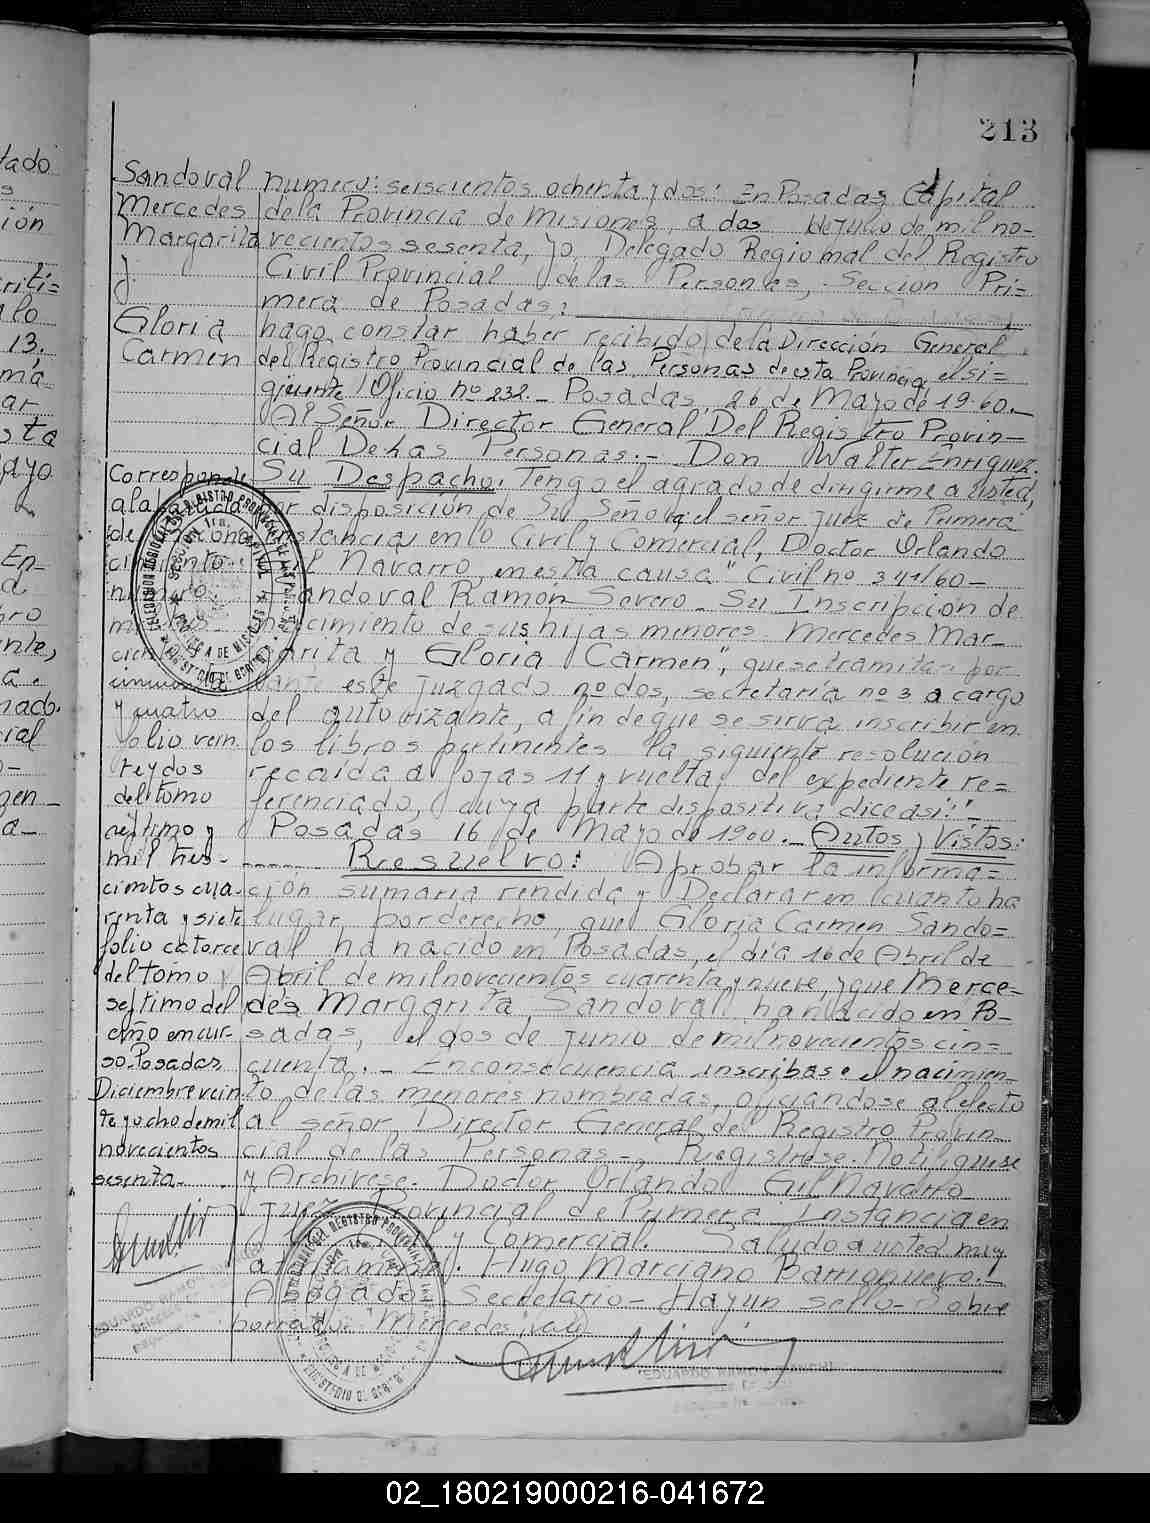 213
Sandoval
Mercedes
Margarita
y
Gloria
Carmen
numero: seiscientos ochenta y dos: En Posadas, Capital
de la Provincia de Misiones, a dos de Julio de mil no-
vecientos sesenta, yo, Delegado Regional del Registro
Civil Provincial de las Personas, Sección Pri=
mera de Posadas;
hago constar haber recibido de la Dirección General
del Registro Provincial de las Personas de esta Provincia el si=
guiente Oficio nº 232.- Posadas, 26 de Mayo de 1960.-
Al Señor Director General Del Registro Provin-
cial De Las Personas.- Don Walter Enriquez.
Su Despacho. Tengo el agrado de dirigirme a usted,
por disposición de Su Señoria el señor juez de Primera
Instancia en lo Civil y Comercial, Doctor Orlando
Gil Navarro, en esta causa "Civil nº 341/60-
Sandoval Ramón Severo - Su Inscripción de
nacimiento de sus hijas menores Mercedes Mar-
garita y Gloria Carmen", que se tramitan por
ante este juzgado nº dos, secretaría nº 3 a cargo
del autorizante, a fin de que se sirva inscribir en
los libros pertinentes la siguiente resolución
recaída a fojas 11 y vuelta, del expediente re=
ferenciado, cuya parte dispositiva dice así:"-
Posadas 16 de Mayo de 1960.- Autos y Vistos:
Resuelvo: Aprobar la informa=
ción sumaria rendida y Declarar en cuanto ha
lugar por derecho, que Gloria Carmen Sando=
val ha nacido en Posadas, el día 16 de Abril de
Abril de mil novecientos cuarenta y nueve, y que Merce=
des Margarita Sandoval ha nacido en Po-
sadas, el dos de junio de mil novecientos cin=
cuenta.- En consecuencia inscribase el nacimien-
to de las menores nombradas, oficiandose al efecto
al señor Director General del Registro Provin-
cial de las Personas-, Registrese. Notifiquese
y Archivese. Doctor Orlando Gil Navarro
Juez Provincial de Primera Instancia en
lo Civil y Comercial. Saludo a usted muy
atentamente. Hugo Marciano Barrionuevo.-
Abogado Secretario - Hay un sello - Sobre
borrado: Mercedes, vale
Corresponde
a la
de
número
y cuatro
folio vein
te y dos
del tomo
séptimo y
mil tres-
cientos cua-
renta y siete
folio catorce
del tomo
septimo del
año en cur-
so. Posadas
Diciembre vein
te y ocho de mil
novecientos
sesenta-
02_180219000216-041672